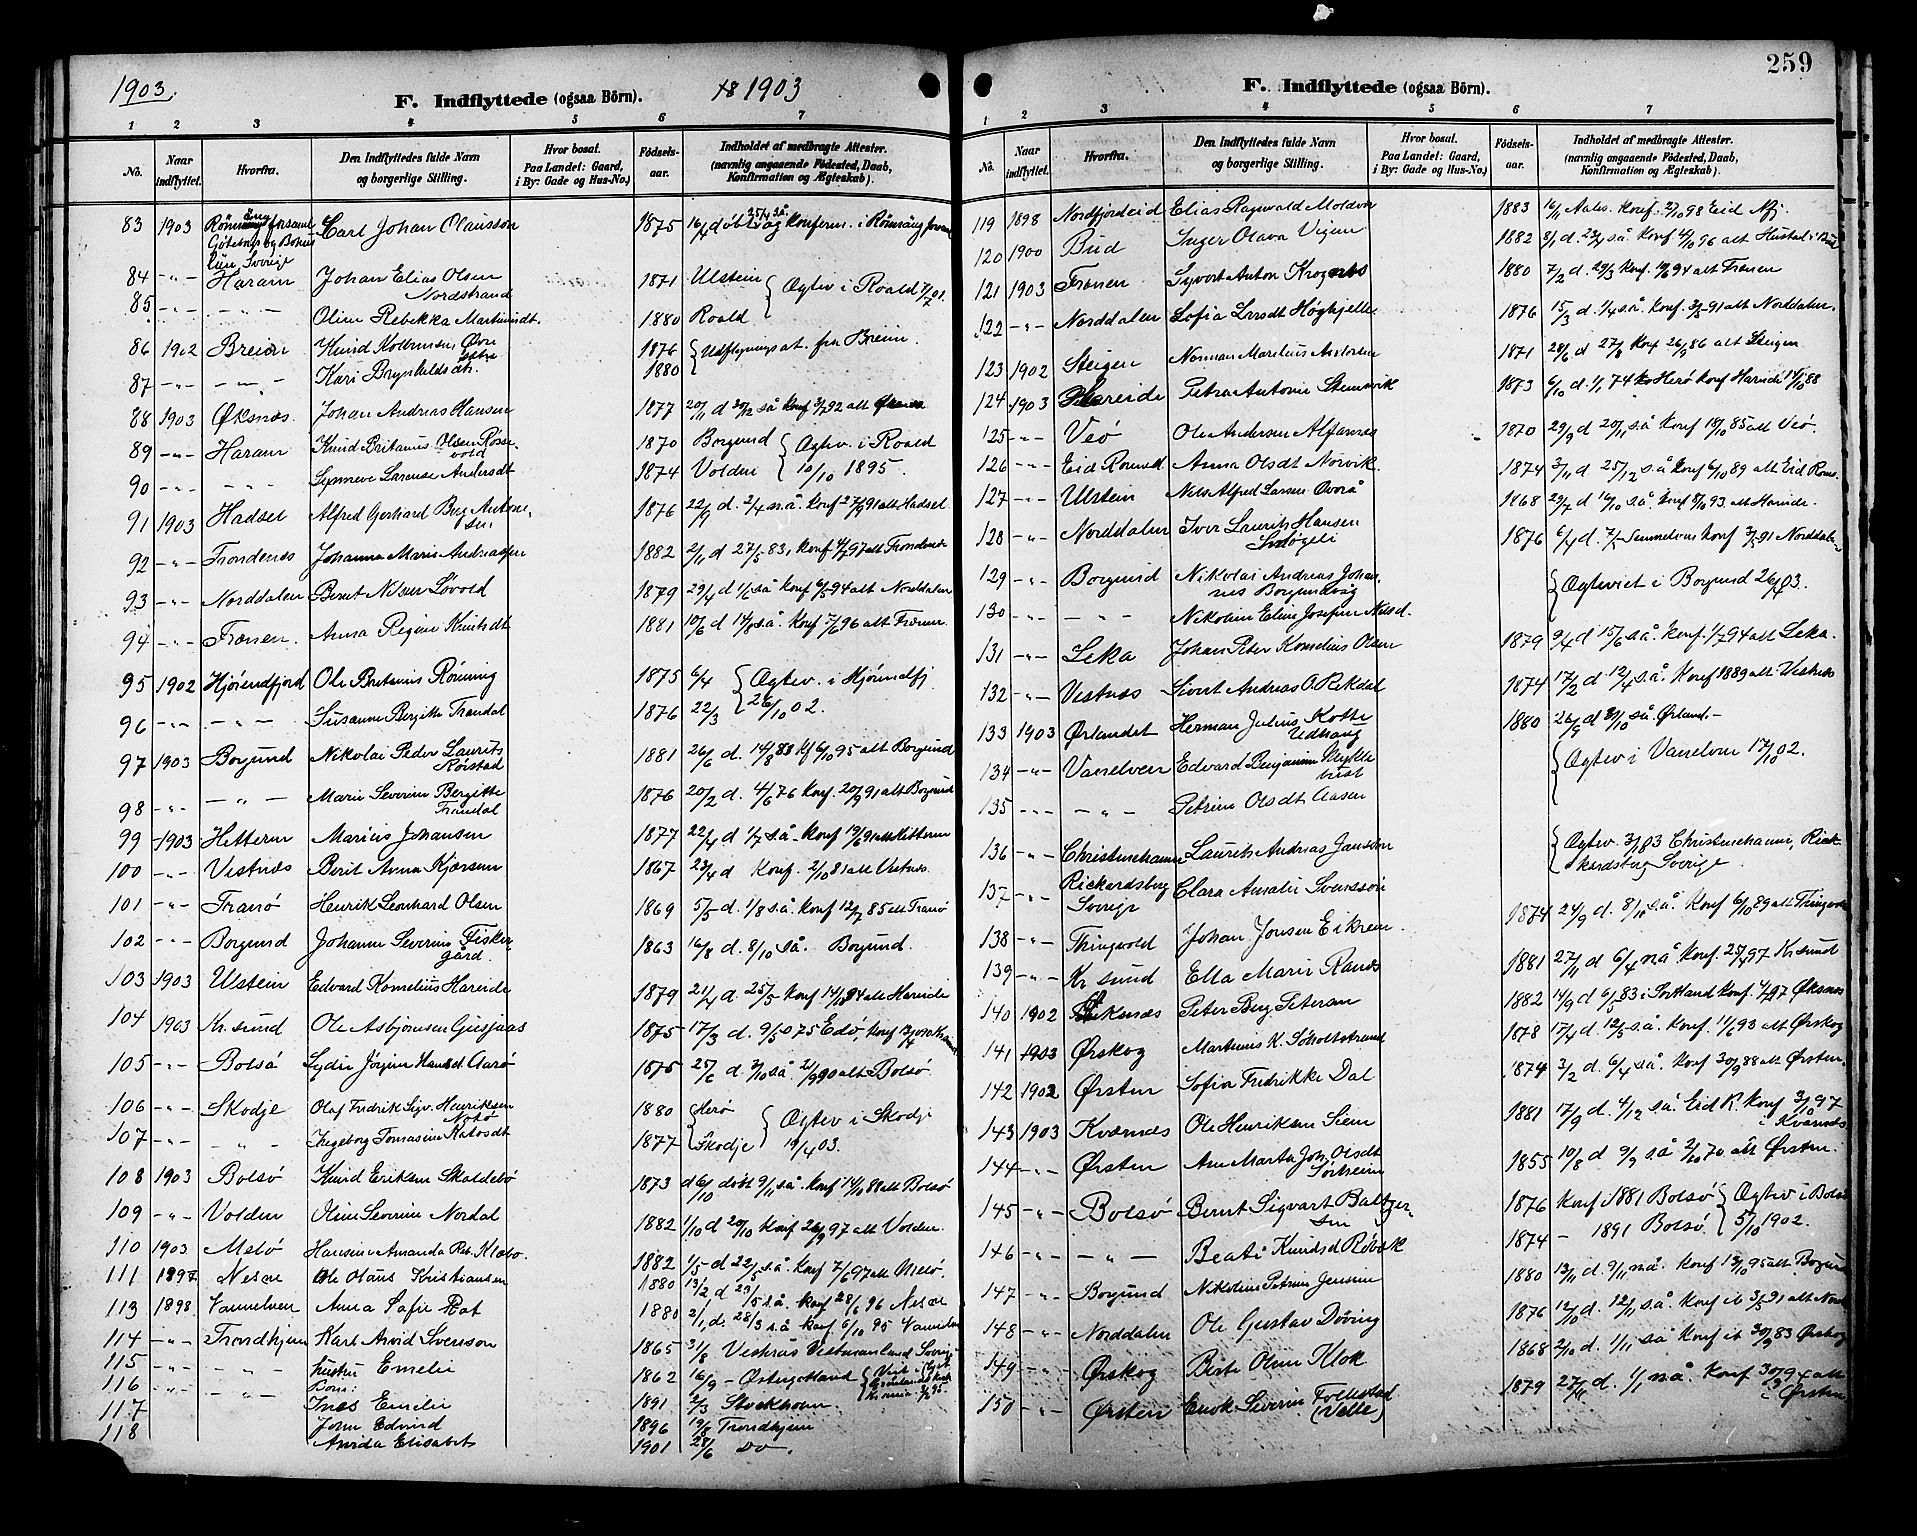 1903.
F. Indflyttede (ogsaa Börn).
18 1903
1 2 3 4 5 6 7
No. Naar indflyttet. Hvorfra. Den Indflyttedes fulde Navn og borgerlige Stilling. Hvor bosat. Paa Landet: Gaard, i By: Gade og Hus-No.) Födsels-aar. Indholdet af medbragte Attester. (navnlig angaaende Födested, Daab, Konfirmation og Ægteskab).
83 1903 Carl Johan Olausson 1875
Göteborgs og Bohus
län Sverige
84 -"- Haram Johan Elias Olsen 1871 Ulstein
Nordstrand Ægtev. i Roald
85 -"- -"- Oline Rebekka Martinusdt. 1880 Roald
86 1902 Breim Knud 1876 Udflytningsat. fra Breim.
87 -"- -"- Kari 1880
88 1903 Øksnæs Johan Andreas Hansen 1877 20/11 d 30/12 så Konf 3/7 92 alt Øksnæs
89 -"- Haram Knud Britanus Olsen 1870 Borgund Ægtev. i Roald
90 -"- -"- Synneve Larense Andersdt 1874 Volden 10/10 1895.
91 1903 Hadsel Alfred Gerhard Berg Antonsen 1876 22/9 d. 2/4 n.å. Konf 27/9 91 alt Hadsel
92 -"- Trondenes Johanna Marie Andreassen 1882 2/11 d 27/5 83, Konf 4/7 97 alt Trondenes
93 -"- Norddalen Bernt Nilsen Løvold 1879 29/4 d 1/6 så Konf 6/5 94 alt Norddalen
94 -"- Frænen. Anna Regine Knutsdt 1881 10/6 d 14/8 s.å. Konf 7/6 96 alt Frænen
95 1902 Hjørendfjord Ole Britanus Rönning 1875 6/4 Ægtev. i Hjörundfj.
96 -"- -"- Susanne Bergitte Trandal 1876 22/3 26/10 02.
97 1903 Borgund Nikolai Peder Laurits 1881 26/6 d. 14/8 83 Kf 6/10 95 alt Borgund
Röistad
98 -"- -"- Marie Severine Bergitte 1876 20/2 d. 4/6 76 Konf. 20/9 91 alt Borgund
Trandal
99 1903 Hitteren Marius Johansen 1877 22/4 d 1/7 s.å. Konf
100 -"- Vestnæs Berit Anna Kjærsem 1867 23/4 d Konf. 2/10 81 alt Vestnæs
101 -"- Tranö Henrik Leonhard Olsen 1869 5/5 d. 1/8 s.å. Konf 12/7 85 alt Tranö
102 -"- Borgund Johanne Severine Fisker- 1863 16/8 d. 8/10 så. Borgund.
gård.
103 1903 Ulstein Edvard Kornelius Hareide 1879 21/4 d. 25/5 Konf 14/10 94 alt Hareide
104 1903 Kr.sund Ole Asbjørnsen 1875 17/3 d. 9/5 75 Edö, Konf
105 -"- Bolsö Lydie Jörgine Hansd. Aarö 1875 25/6 d. 3/10 så. 21/9 90 alt Bolsö
106 -"- Skodje Olaf Fredrik Sigv. Henriksen 1880 Herö Ægtev i Skodje
107 -"- -"- Ingeborg Tomasine 1877 Skodje 19/4 03.
108 1903 Bolsö Knud Eriksen Skaldebö 1873 d 6/10 döbt 9/11 så. Konf 14/10 88 alt Bolsö
109 -"- Volden Oline Severine Nordal 1882 1/10 d 29/10 Konf 26/9 97 alt Volden.
110 1903 Melö Hansine Amanda 1882 1/5 d 22/5 så. Konf 7/6 97 alt Melö.
111 1897 Nesne Ole Olaus Kristiansen 1880 13/2 d 29/5 s.å. Konf 28/6 96 Nesne
113 1898 Vannelven Anna Sofie 1880 2/1 d. 28/3 s.å Konf 6/10 95 Vannelven
114 -"- Trondhjem Karl Arvid Svensson 1865 31/8 Vestrås Vestmanland Sverige
115 -"- -"- hustru Emelie 1862 16/9 - Östergötland
116 -"- -"- Børn:
117 Ines Emilie 1891 2/3 Stockholm.
118 John Edvind 1896 19/8 Trondhjem
Arvida Elisabet 1901 28/6 Do.
259
F. Indflyttede (ogsaa Börn).
1 2 3 4 5 6 7
No. Naar indflyttet. Hvorfra. Den Indflyttedes fulde Navn og borgerlige Stilling. Hvor bosat. Paa Landet: Gaard, i By: Gade og Hus-No.) Födsels-aar. Indholdet af medbragte Attester. (navnlig angaaende Födested, Daab, Konfirmation og Ægteskab).
119 1898 Nordfjordeid Elias Ragnvald Moldvær 1883 16/11 Aales. Konf. 2/10 98 Eid Nfj.
120 1900 Bud Inger Olava Vigen 1882 8/1 d. 23/4 så Konf 4/10 96 alt Hustad i Bud
121 1903 Frænen Syvert Anton Krognæs 1880 7/2 d. 29/3 Konf. 10/6 94 alt Frænen
122 -"- Norddalen Sofia Larsdt Høghjelle 1876 15/3 d. 1/4 s.å. Konf. 3/5 91 alt Norddalen.
123 1902 Steigen Norman Marelius Andersen 1871 28/6 d 27/8 Konf 26/9 86 alt Steigen.
124 1903 Hareide Petra Antonie Steinsvik 1873 6/10 d. 1/1 74 Herö Konf Hareide 14/10 88
125 -"- Veö Ole Andersen Alfarnes 1870 29/9 d 20/11 så Konf 18/10 85 alt Veö.
126 -"- Eid Romsd. Anna Olsdt Nørvik. 1874 3/11 d 25/12 s.å Konf 6/10 89 alt Eid Roms.
127 -"- Ulstein Nils Alfred Larsen Overå 1868 29/7 d 16/10 så. Konf 8/10 93 alt Hareide.
128 -"- Norddalen Iver Laurits Hansen 1876 6/4 d. 7/5 Konf 3/5 91 Norddalen
129 -"- Borgund Nikolai Andreas Johan- Ægteviet i Borgund 26/4 03.
nes Borgundvåg
130 -"- -"- Nikoline Eline Josefine Nilsd.
131 -"- Leka Johan Peter Kornelius Olsen 1879 9/4 d 15/6 så. Konf. 1/7 94 alt Leka.
132 -"- Vestnæs Sivert Andreas O. Rekdal 1874 17/2 d 12/4 s.å. Konf 1889 alt Vestnæs
133 1903 Ørlandet Herman Julius Kotte 1880 26/9 d 31/10 så. Ørland.-
Udhaug
134 -"- Vanelven Edvard Benjamin Myklebust Ægtev i Vanelven 17/10 02.
135 -"- -"- Petrine Olsdt Aasen
136 -"- Christinehamn Laurits Andreas Jansson Ægtev. 3/5 03 Christinehamn, Rick-
137 -"- Rickardsberg Clara Amalie Svensson kardsberg Sverige.
Sverige
138 -"- Thingvold Johan Jonsen Eikrem 1874 24/9 d. 8/11 s.å. Konf 6/10 89 alt Thingvold
139 -"- Kr.sund Ella Marie Rands 1881 27/11 d 6/4 n.å Konf. 25/4 97 Kr.sund
140 1902 Øksnæs Peter Berg Petersen 1882 14/9 d 6/5 83 i Sortland Konf. 4/7 97 Øksnæs
141 1903 Ørskog Martinus K. Søholtstrand 1878 17/4 d 12/5 s.å. Konf. 11/6 93 alt Ørskog
142 1902 Ørsten Sofia Fredrikke Dal 1874 3/2 d. 6/4 s.å. Konf. 30/9 88 alt Ørsten.
143 1903 Kvernes Ole Henriksen Siem 1881 17/9 d. 4/12 så. Eid R. Konf. 3/10 97
i Kvernes
144 -"- Ørsten Ane Marta Joh. Olsdt 1855 10/8 d 9/9 så 2/10 70 alt Ørsten.
Sørheim
145 -"- Bolsö Bernt Sigvart Baltzer- 1876 Konf 1881 Bolsö Ægtev i Bolsö
sen
146 -"- -"- Beate Knudsd Røbæk 1874 - 1891 Bolsö. 5/10 1902.
147 -"- Borgund Nikoline Petrine Jensine 1880 13/11 d. 9/11 n.å. Konf 13/10 95 alt Borgund
148 -"- Norddalen Ole Gustav Döving 1876 12/10 d. 12/11 s.å. Konf it 3/5 91 alt Nord
149 -"- Ørskog Berte Oline Klok 1868 2/10 d. 1/11 så Konf it 30/9 83 Ørskog
150 -"- Ørsten Enok Severin Folkestad 1879 27/11 d. 1/1 n.å. Konf 30/9 94 alt
(Velle) i Ørsten